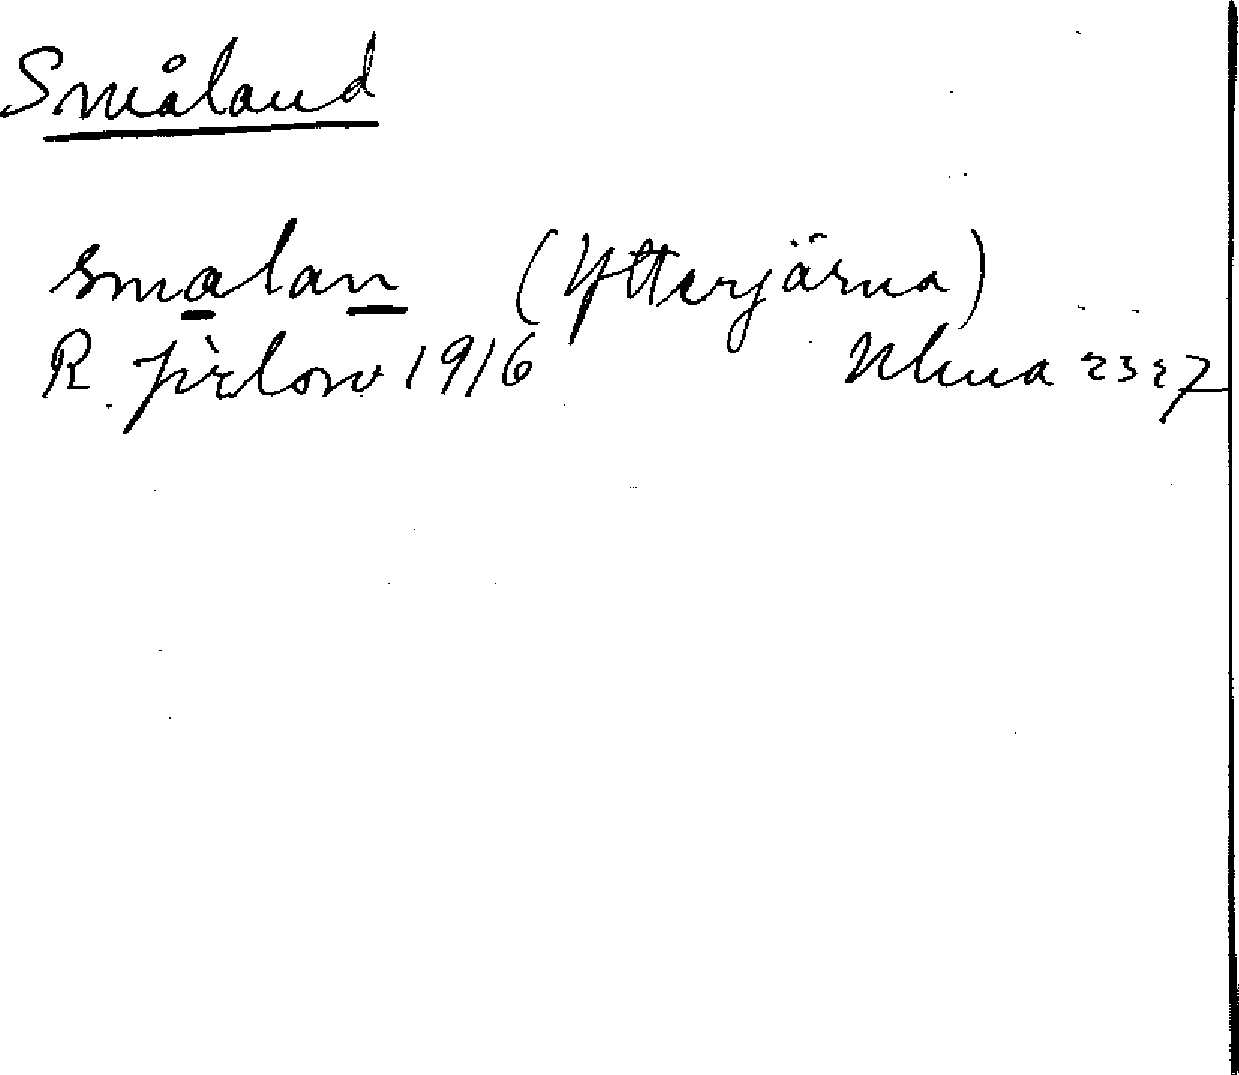 Småland
smalan (Ytterjärna)
R. Jirlow 1916